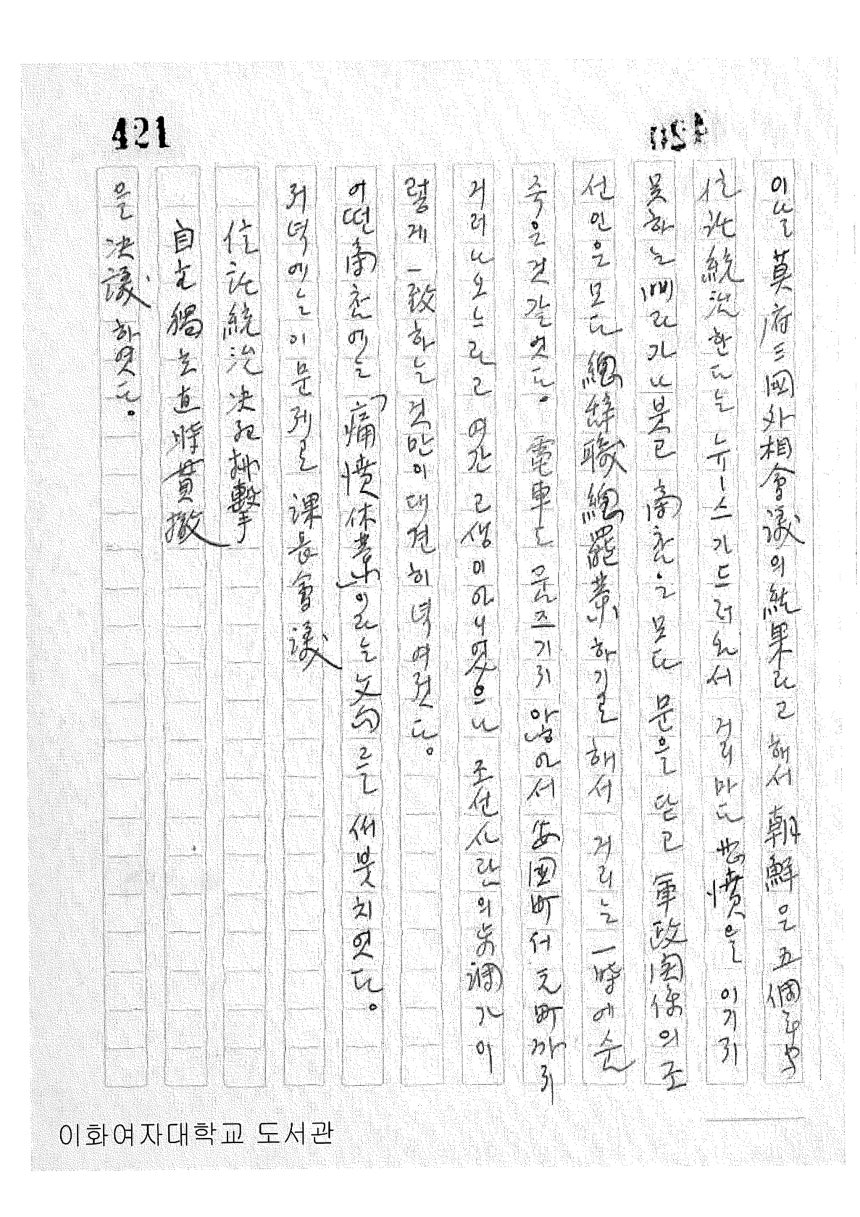 421
이날 莫府三國外相會議의 結果라고 해서 朝鮮은 五個年
信託統治한다는 뉴ー스가 드러와서 거리마다 悲憤을 이기지
못하는 삐라가 나붓고 商店은 모다 문을 닫고 軍政関係의 조
선인은 모다 總辞職 總罷業하기로 해서 거리는 一時에 숨
죽은 것 갈엇다。 電車는 움즈기지 않아서 安国町서 元町까지
거러 나오느라고 여간 고생이 아니엿으나 조선사람의 步調가 이
렇게 一致하는 것만이 대견히 녁여젓다。
어떤 商店에는 「痛憤休業」이라는 文句를 써붓치엿다。
저녁에는 이 문제로 課長會議
信託統治 決死排擊
自主獨立 直時貫撤
을 決議하엿다。
이화여자대학교 도서관